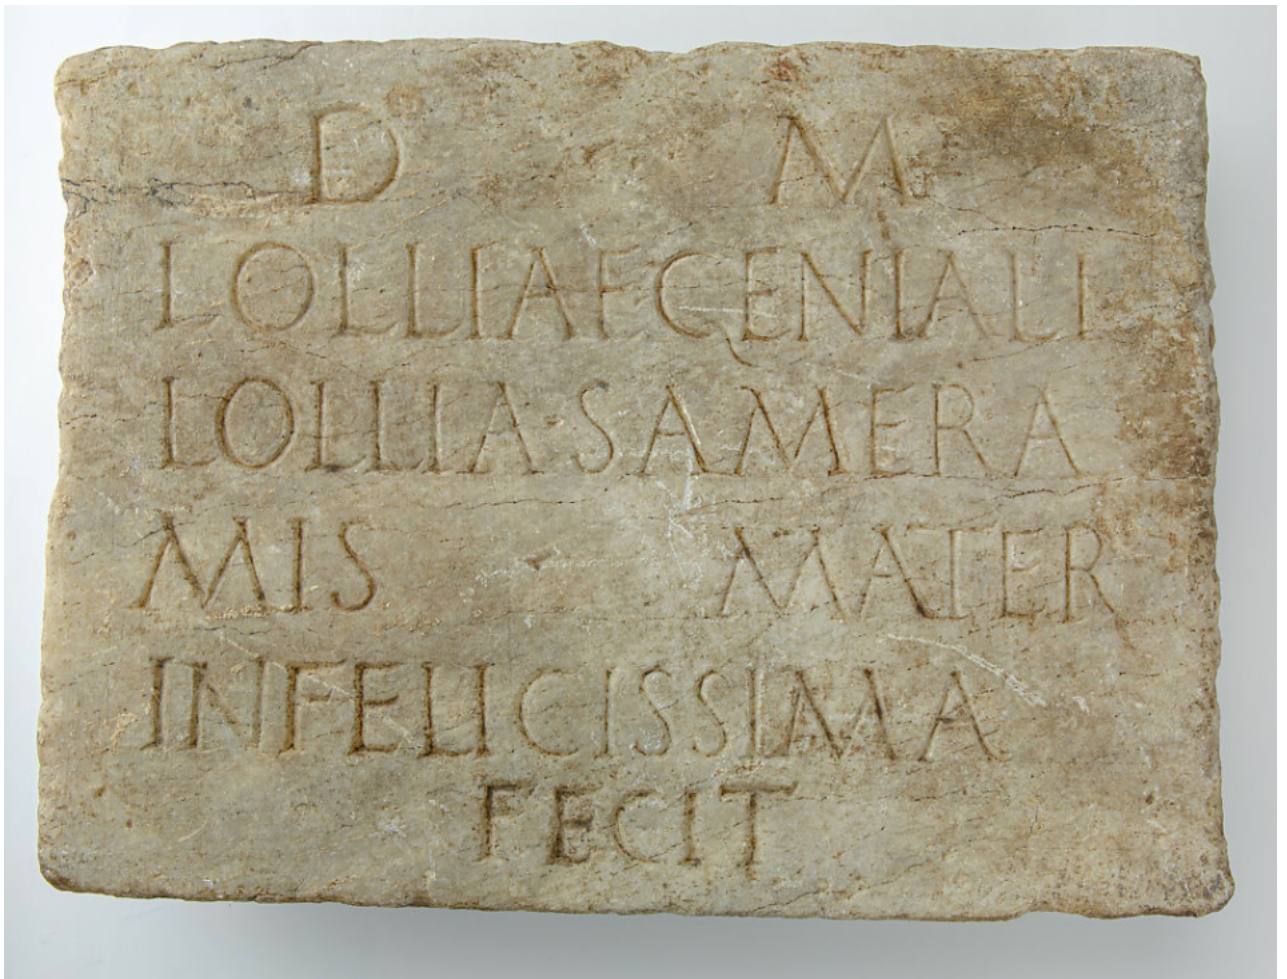 D M
LOLLIAE GENIALI
LOLLIA·SAMERA
MIS MATER
INFELICISSIMA
FECIT